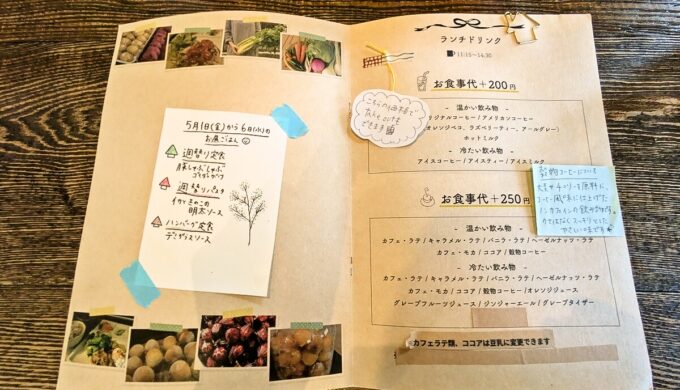 5月1日(金)から6日(水)の
お昼ごはん
週替り定食
豚しゃぶしゃぶ
週替りパスタ
イカときのこの
明太ソース
ハンバーグ定食
デミグラスソース
ランチドリンク
11:15〜14:30
お食事代+200円
こちらの1種で
できます
- 温かい飲み物 -
オリジナルコーヒー / アメリカンコーヒー
オレンジペコ、ラズベリーティー、アールグレー
ホットミルク
- 冷たい飲み物 -
アイスコーヒー / アイスティー / アイスミルク
穀物コーヒーについて
大麦やチコリを原料に、
コーヒー風味に仕上げた
ノンカフェインの飲み物です。
クセはなくスッキリとした
やさしい味です
お食事代+250円
- 温かい飲み物 -
カフェ・ラテ / キャラメル・ラテ / バニラ・ラテ / ヘーゼルナッツ・ラテ
カフェ・モカ / ココア / 穀物コーヒー
- 冷たい飲み物 -
カフェ・ラテ / キャラメル・ラテ / バニラ・ラテ / ヘーゼルナッツ・ラテ
カフェ・モカ / ココア / 穀物コーヒー / オレンジジュース
グレープフルーツジュース / ジンジャーエール / グレープタイザー
カフェラテ類、ココアは豆乳に変更できます